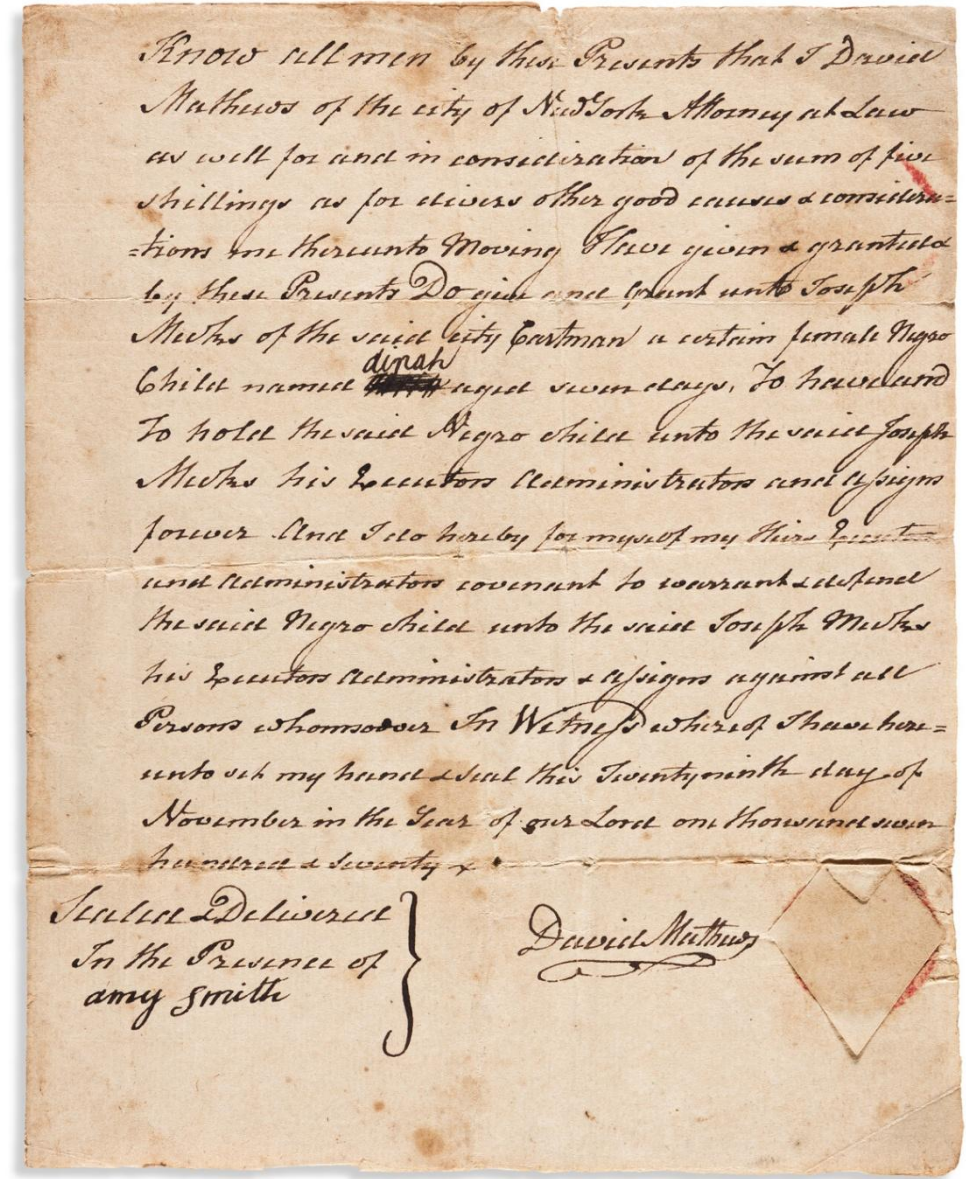 Know all men by these Presents that I David
Mathews of the city of New York Attorney at Law
as well for and in consideration of the sum of five
shillings as for divers other good causes & considera=
=tions me thereunto Moving Have given & granted &
by these Presents Do give and Grant unto Joseph
Meeks of the said city Cartman a certain female Negro
dinah
Child named aged seven days. To have and
To hold the said Negro child unto the said Joseph
Meeks his Executors Administrators and assigns
forever And I do hereby for myself my Heirs Executors
and Administrators covenant to warrant & defend
the said Negro child unto the said Joseph Meeks
his Executors Administrators & assigns against all
Persons whomsoever In Witness whereof I have here=
unto set my hand & seal this Twenty ninth day of
November in the Year of our Lord one thousand seven
hundred & seventy
Sealed & Delivered
In the Presence of
amy Smith
David Mathews